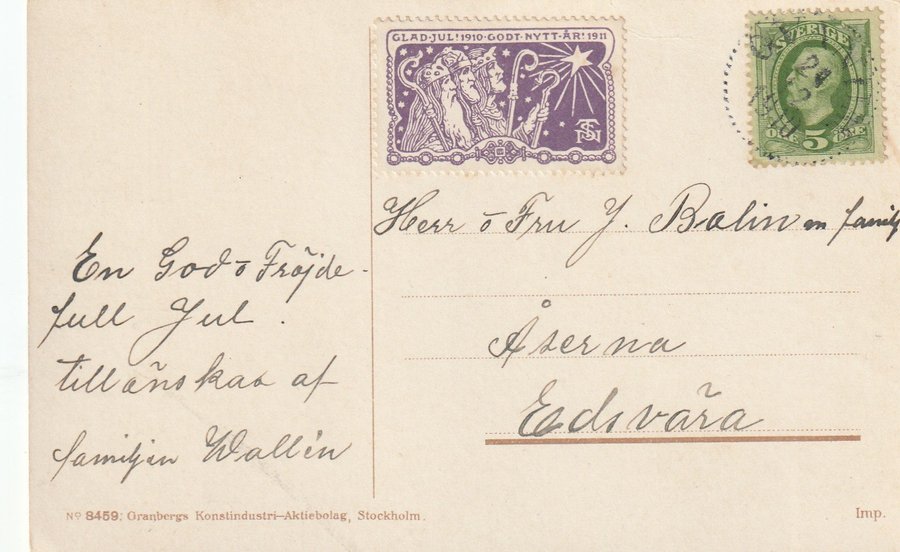 GLAD·JUL! 1910·GODT·NYTT·ÅR! 1911
SVERIGE
ÖRE 5 ÖRE
Herr o Fru J. Balin m familj
En God o Fröjde-
full Jul.
tillönskas af
familjen Wallén
Åserna
Edsvära
No 8459; Granbergs Konstindustri-Aktiebolag, Stockholm.
Imp.